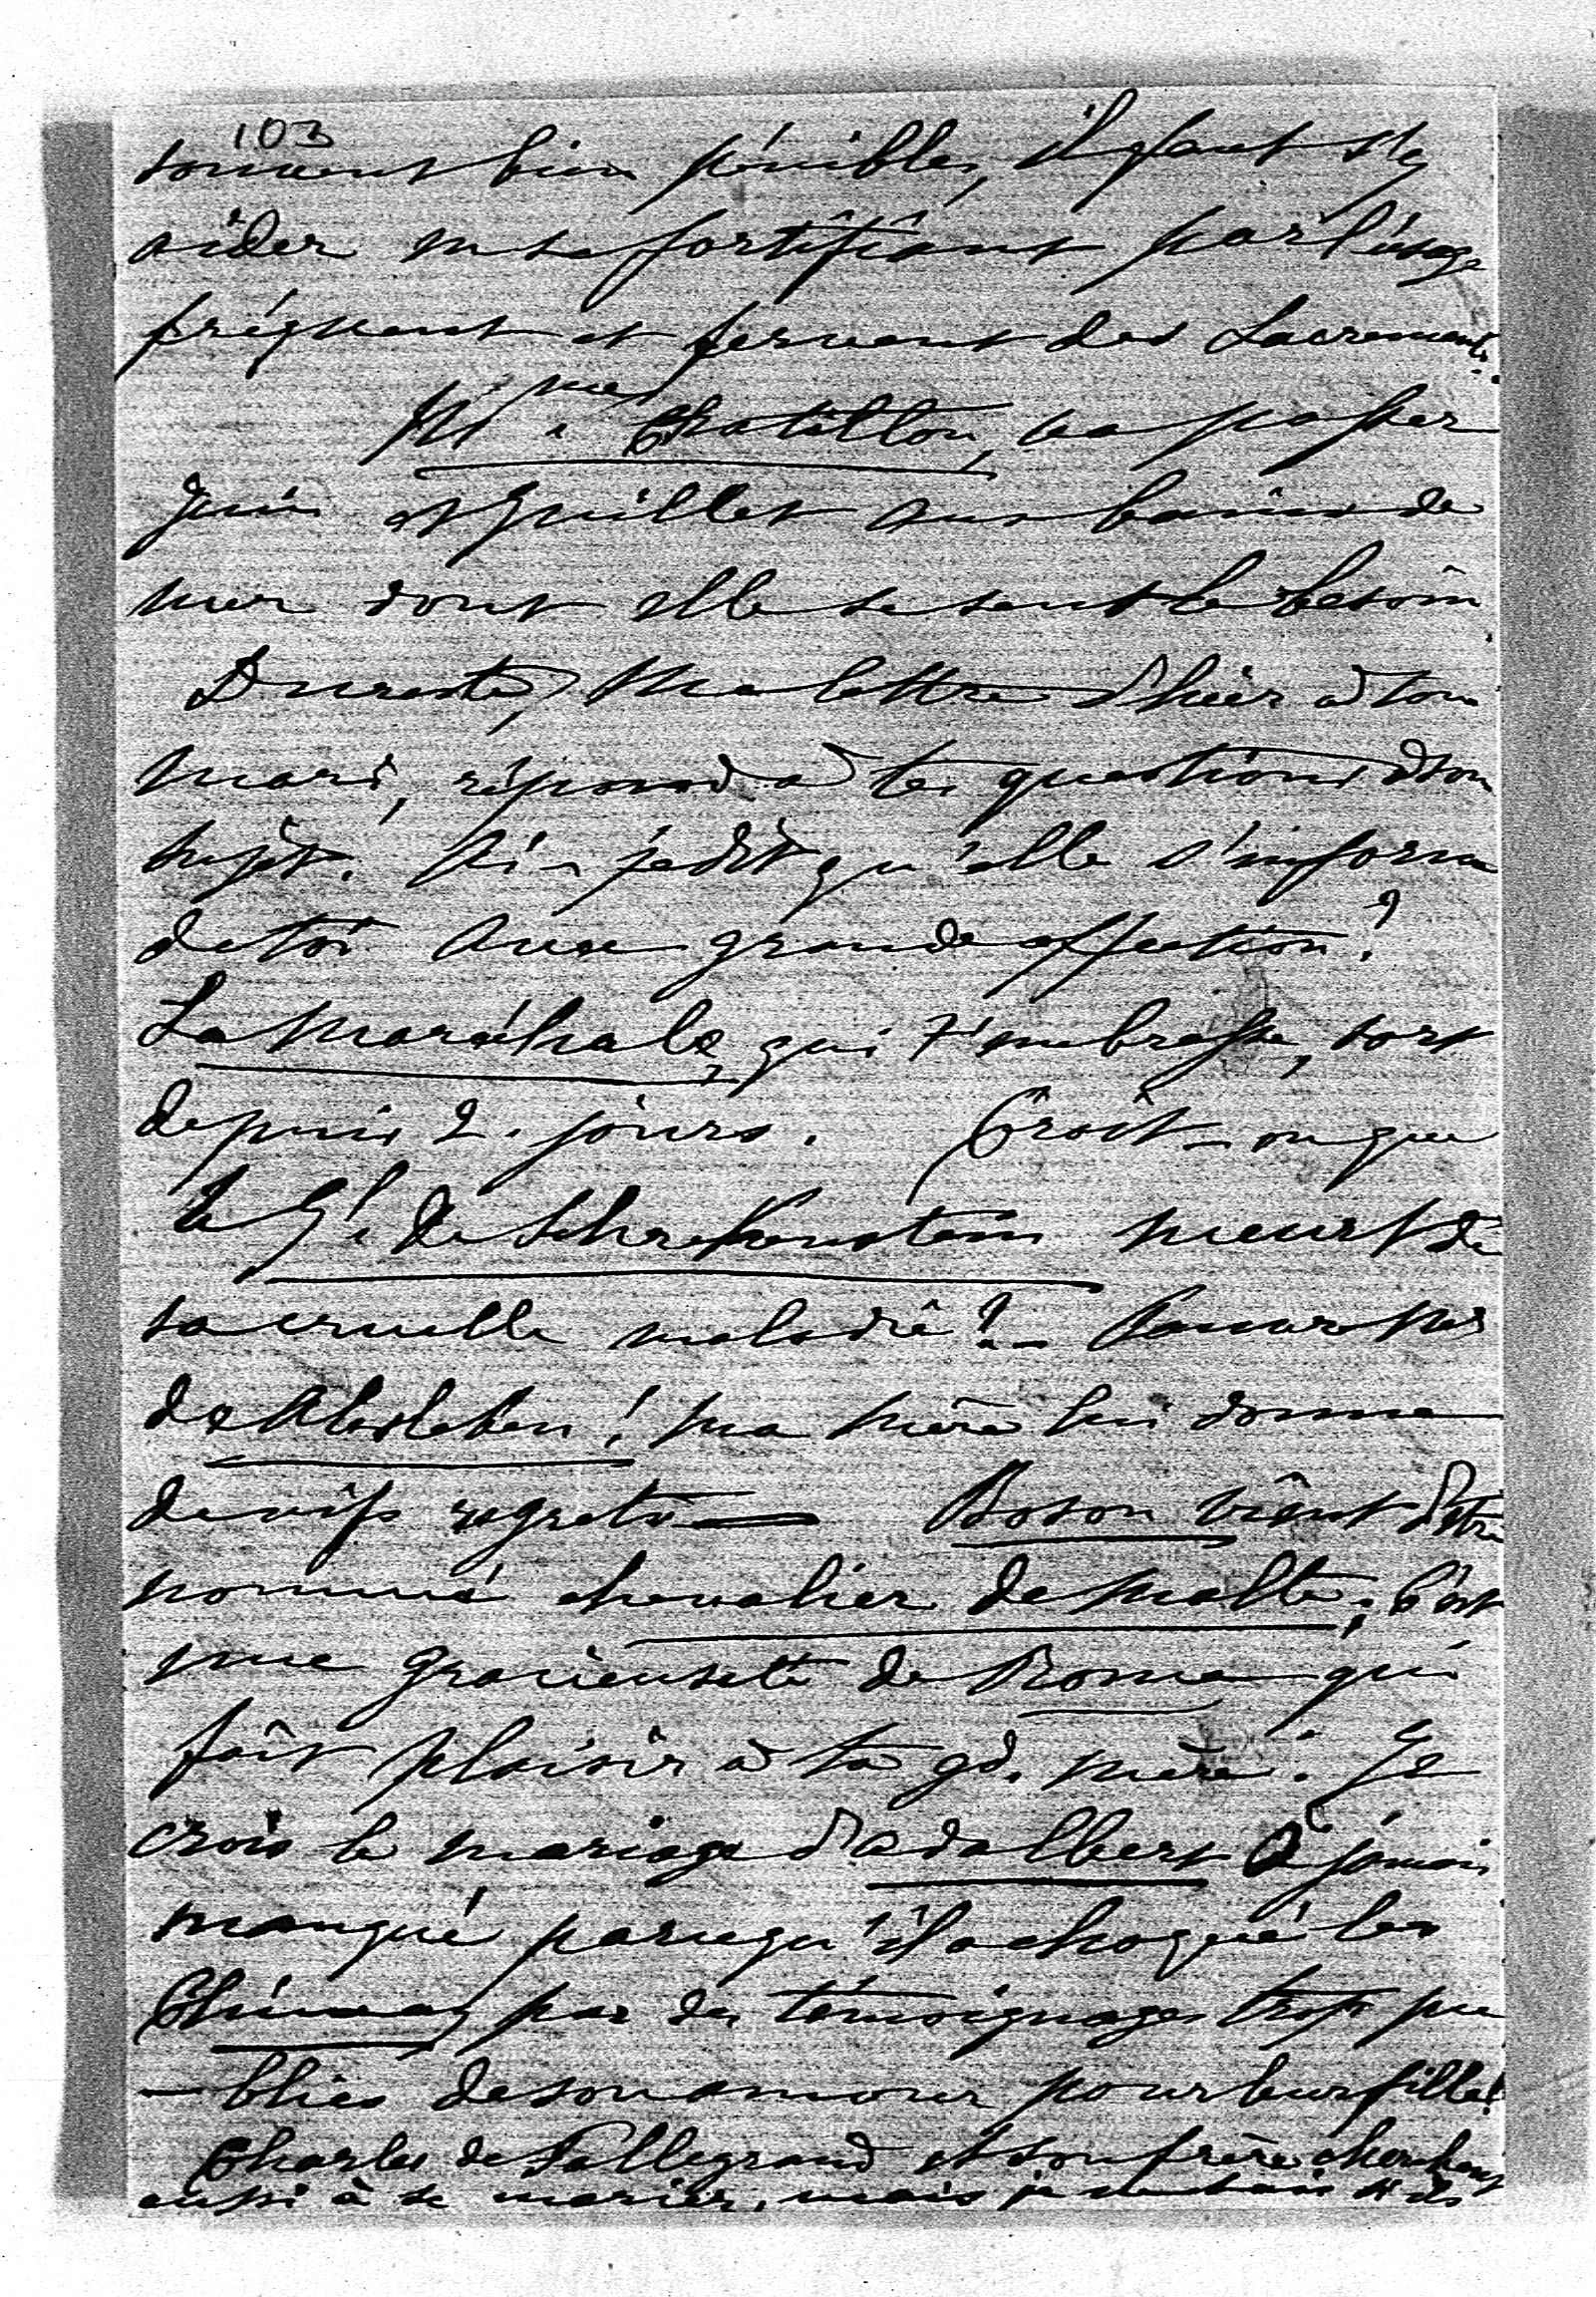 103
souvent bien pénibles, il faut s'y
aider en se fortifiant par l'usage
fréquent et fervent des Sacrements.
Mme Chatillon, va passer
Juin et Juillet aux bains de
mer dont elle se sent le besoin
Du reste, Ma lettre d'hier à ton
mari, répond à tes questions à son
sujet. Ai-je dit qu'elle s'informe
de toi avec grande affection?
La Maréchale, qui t'embrasse, sort
depuis 2. jours. Croit-on que
le Gl. de Schrekenstein meurt de
sa cruelle maladie? - Pauvre Mr
de Alvsleben! ma mère lui donne
de vifs regrets Boson vient d'être
nommé chevalier de Malte; c'est
une gracieuseté de Rome qui
fait plaisir à ta gd. mère. Je
crois le mariage d'Adalbert à jamais
manqué parcequ'il a choqué les
Chimay par des témoignages trop pu
- blics de son amour pour leur fille!
Charles de Tallegrand et son frère cherchent
aussi à se marier, mais je ne sais